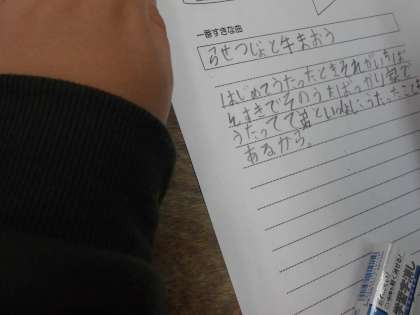 一番すきな曲
弓せつじょと牛まおう
はじめてうたったときそれがいちば
んすきでそのうたばっかり家で
うたってて弟といっしょにうたったことも
あるから。